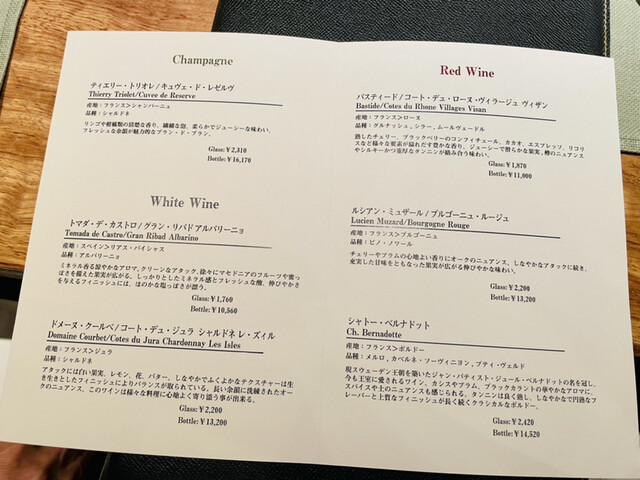 Champagne
ティエリー・トリオレ/キュヴェ・ド・レゼルヴ
Thierry Triolet/Cuvee de Reserve
産地：フランス>シャンパーニュ
品種：シャルドネ
リンゴや柑橘類の清楚な香り、繊細な泡、柔らかでジューシーな味わい。
フレッシュな余韻が魅力的なブラン・ド・ブラン。
Glass:￥2,310
Bottle:￥16,170
White Wine
トマダ・デ・カストロ/グラン・リバド アルバリーニョ
Tomada de Castro/Gran Ribad Albarino
産地：スペイン>リアス・バイシャス
品種：アルバリーニョ
ミネラル香る艶やかなアロマ、クリーンなアタック、徐々にマセドニアのフルーツや蜜っ
ぽさを備えた果実が広がる。しっかりとしたミネラル感とフレッシュな酸、伸びやかさ
を与えるフィニッシュには、ほのかな塩っぽさが漂う。
Glass:￥1,760
Bottle:￥10,560
ドメーヌ・クールベ/コート・デュ・ジュラ シャルドネ レ・ズィル
Domaine Courbet/Cotes du Jura Chardonnay Les Isles
産地：フランス>ジュラ
品種：シャルドネ
アタックには白い果実、レモン、花、バター。しなやかでふくよかなテクスチャーは生
き生きとしたフィニッシュによりバランスが取られている。長い余韻に洗練されたオー
クのニュアンス。このワインは様々な料理に心地よく寄り添う事が出来る。
Glass:￥2,200
Bottle:￥13,200
Red Wine
バスティード/コート・デュ・ローヌ・ヴィラージュ ヴィザン
Bastide/Cotes du Rhone Villages Visan
産地：フランス>ローヌ
品種：グルナッシュ、シラー、ムールヴェードル
熟したチェリー、ブラックベリーのコンフィチュール、カカオ、エスプレッソ、リコリ
スなど様々な要素が溢れだす豊かな香り。ジューシーで滑らかな果実、樽のニュアンス
やシルキーかつ重厚なタンニンが絡み合う味わい。
Glass:￥1,870
Bottle:￥11,000
ルシアン・ミュザール/ブルゴーニュ・ルージュ
Lucien Muzard/Bourgogne Rouge
産地：フランス>ブルゴーニュ
品種：ピノ・ノワール
チェリーやプラムの心地よい香りにオークのニュアンス。しなやかなアタックに続き、
充実した甘味をともなった果実が広がる伸びやかな味わい。
Glass:￥2,200
Bottle:￥13,200
シャトー・ベルナドット
Ch. Bernadotte
産地：フランス>ボルドー
品種：メルロ、カベルネ・ソーヴィニヨン、プティ・ヴェルド
現スウェーデン王朝を築いたジャン・バティスト・ジュール・ベルナドットの名を冠し、
今も王室に愛されるワイン。カシスやプラム、ブラックカラントの華やかなアロマに、
スパイスや土のニュアンスも感じられる。タンニンは良く熟し、しなやかで円熟フ
レーバーと上質なフィニッシュが長く続くクラシカルなボルドー。
Glass:￥2,420
Bottle:￥14,520